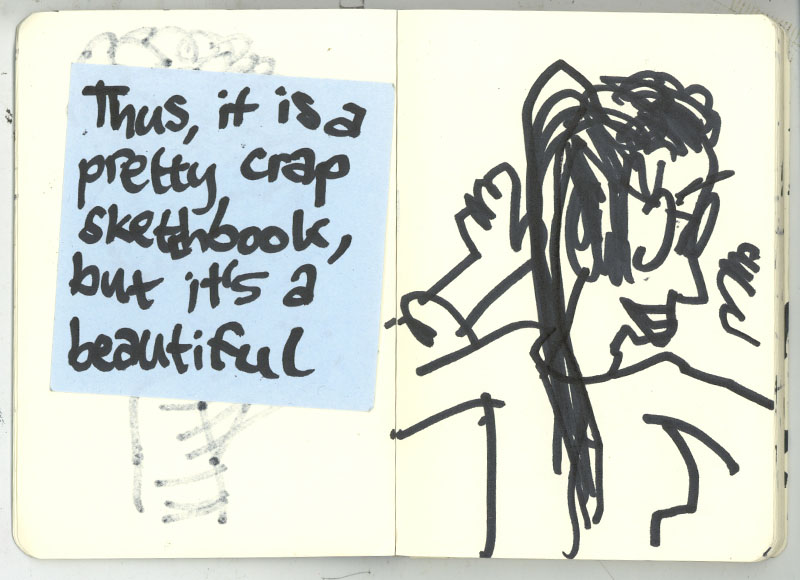 Thus, it is a
pretty crap
sketchbook,
but it's a
beautiful